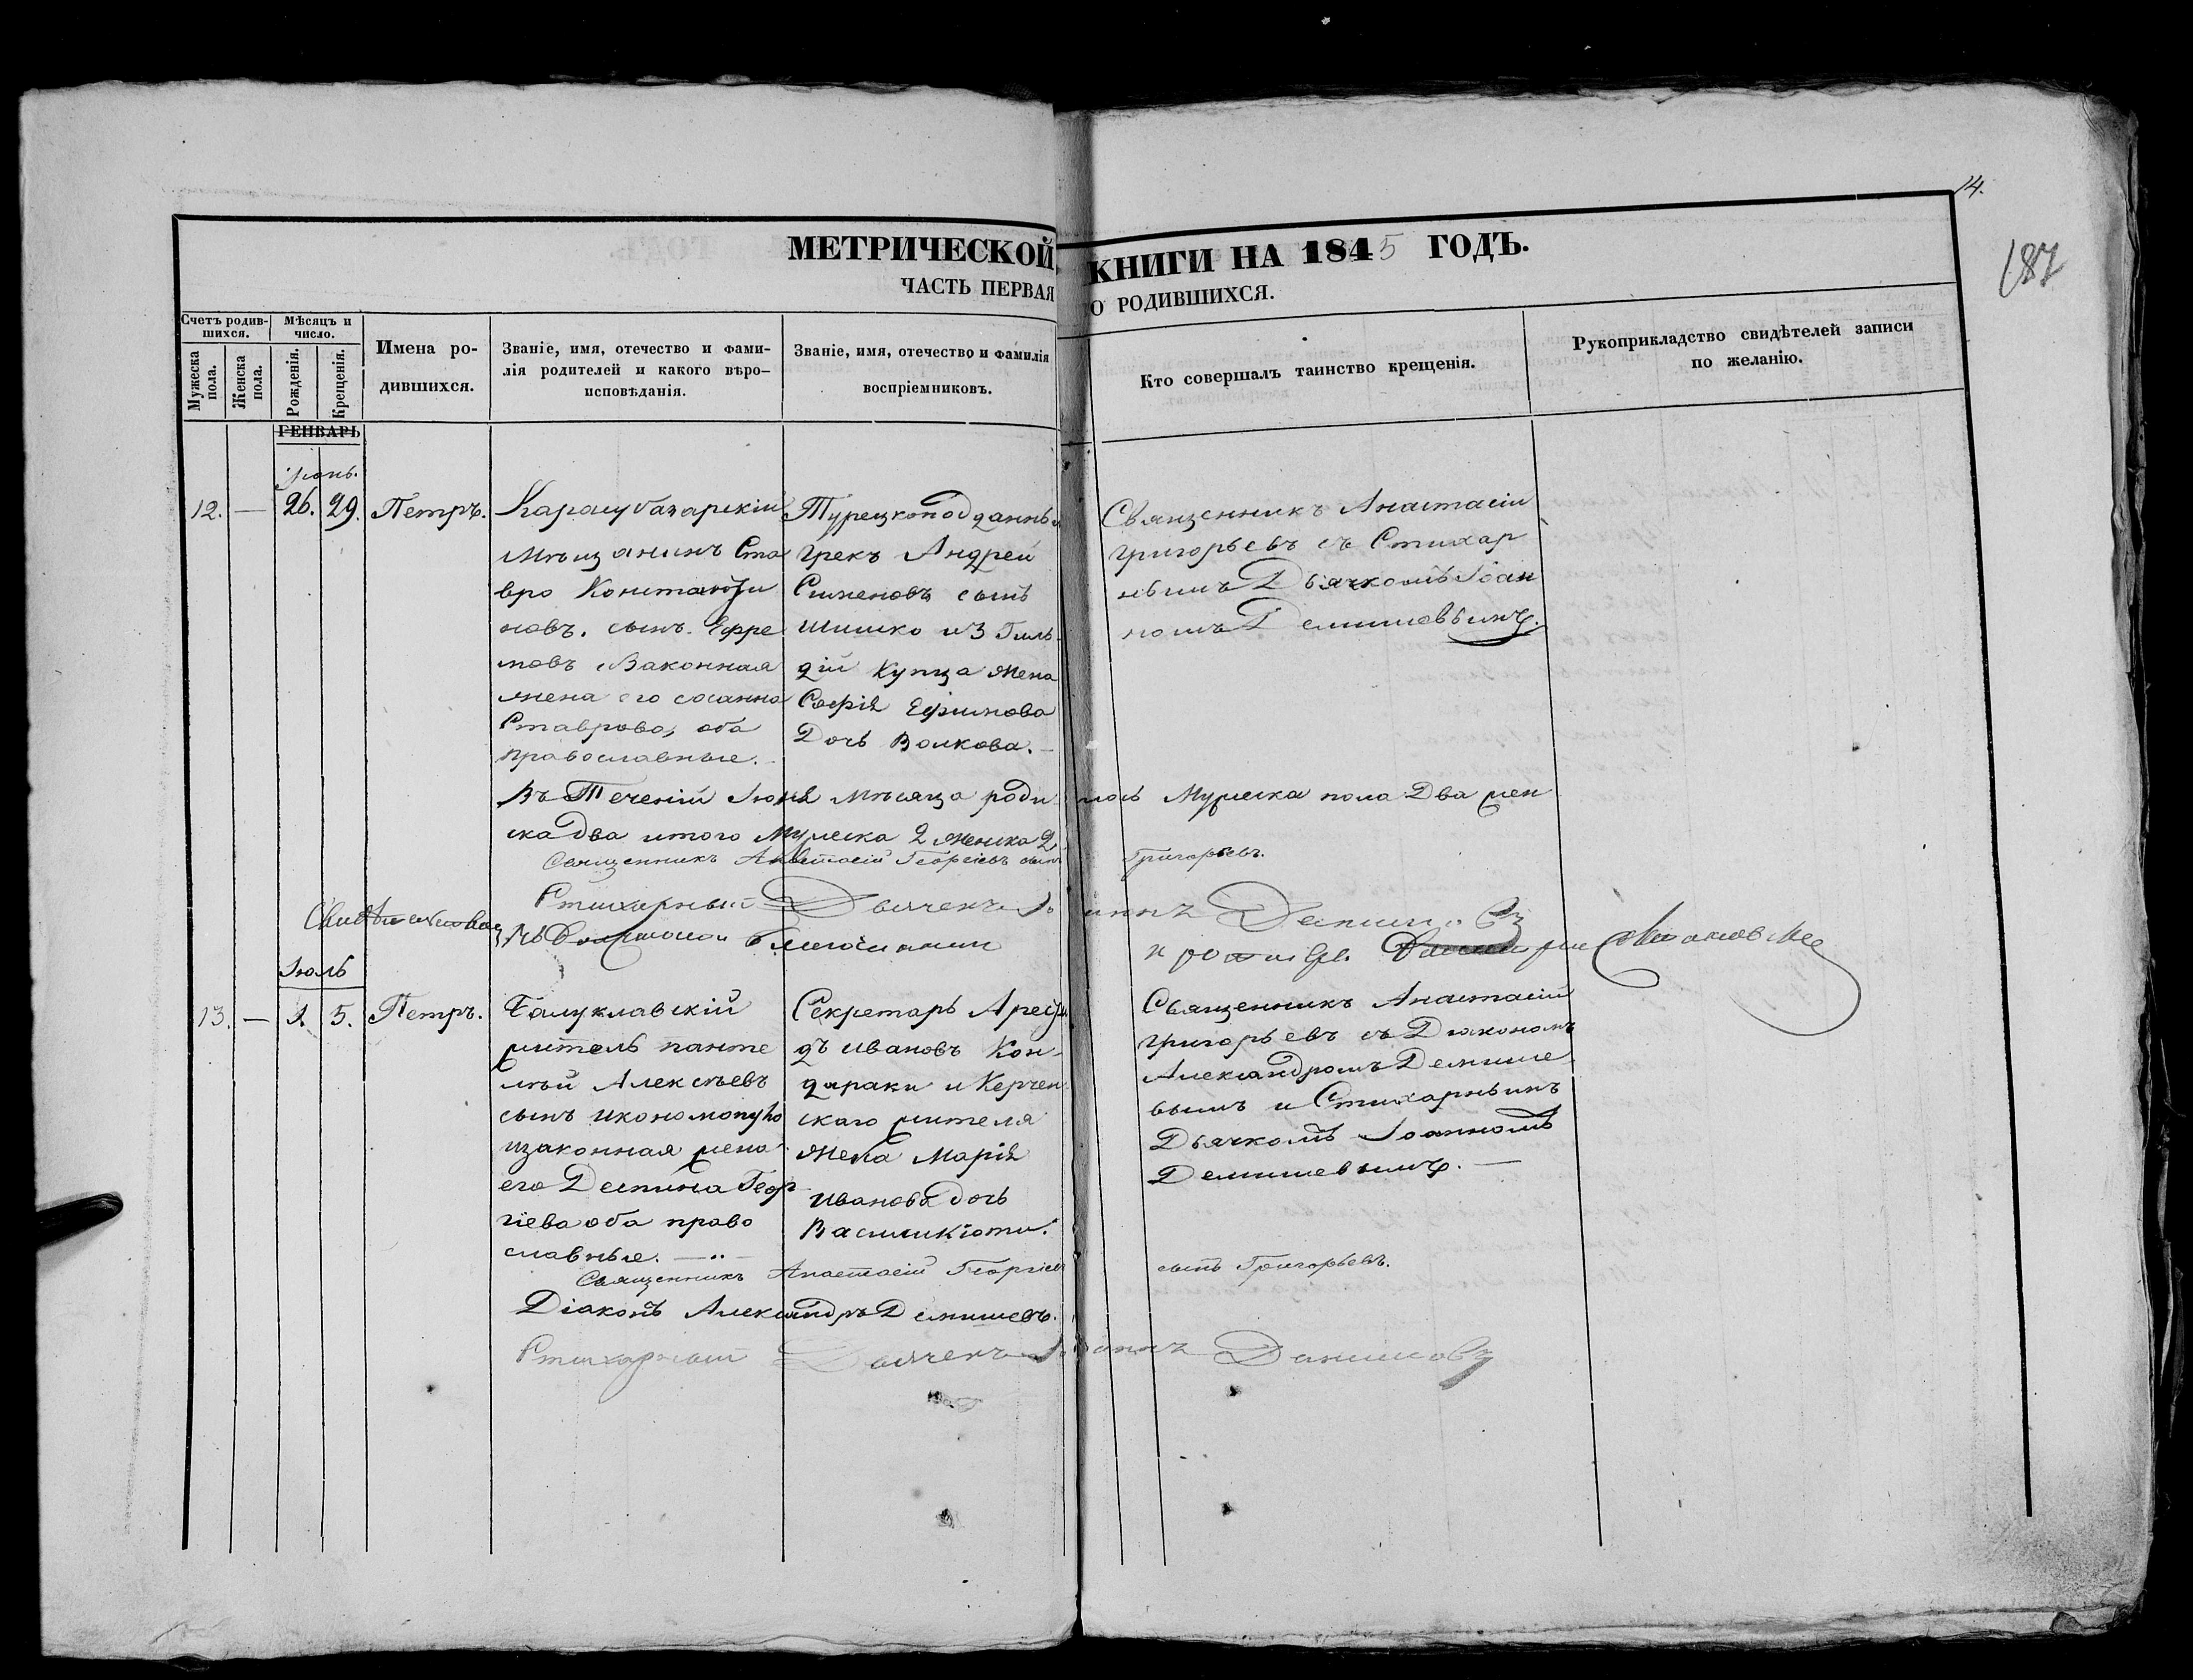 14.
187
МЕТРИЧЕСКОЙ КНИГИ НА 1845 ГОДЪ.
ЧАСТЬ ПЕРВАЯ О РОДИВШИХСЯ.
Счетъ родив-
шихся.
Мужеска пола.
Женска пола.
Мѣсяцъ и
число.
Рожденія.
Крещенія.
Имена ро-
дившихся.
Званіе, имя, отечество и фами-
лія родителей и какого вѣро-
исповѣданія.
Званіе, имя, отечество и фамилія
воспріемниковъ.
Кто совершалъ таинство крещенія.
Рукоприкладство свидѣтелей записи
по желанію.
ГЕНВАРЬ
Іюнь.
12. — 26. 29. Петръ.
Карасубазарскій
мѣщанинъ Ста
вро Константи
новъ. сынъ Ефре
мовъ изаконная
жена его сосанна
Ставрова, оба
православные.
Турецкоподданны
грекъ Андрей
Сименовъ сынъ
Шишко и 3 Гиль
дій купца жена
Софія Ефимова
Дочь Волкова. —
Священникъ Анастасій
григорьевъ съ Стихар
нымъ Дьячкомъ Іоан
номъ Демишовымъ.
Въ Теченіи Іюня мѣсяца роди лось Мужеска пола Два жен
ска два итого Мужеска 2 женска 2
Священникъ Анастасій Георгіевъ сынъ Григорьевъ.
Стихарный Дьячекъ Іоаннъ
Іюль
13. — 1. 5. Петръ.
Балуклавскій
житель панте
лѣй Алексѣевъ
сынъ икономопуло
изаконная жена
его Деспина Геор
гіева оба право
славные. —
Секретарь
дъ Ивановъ Кон-
дараки и Керчен
скаго жителя
жена Марія
Иванова дочь
Василикіоти.
Священникъ Анастасій
григорьевъ съ Діакономъ
Александромъ Демише
вымъ и Стихарнымъ
Дьячкомъ Іоанномъ
Демишевымъ. —
Священникъ Анастасій Георгіевъ сынъ Григорьевъ.
Діаконъ Александръ Демишевъ.
Стихарный Дьячекъ Іоаннъ